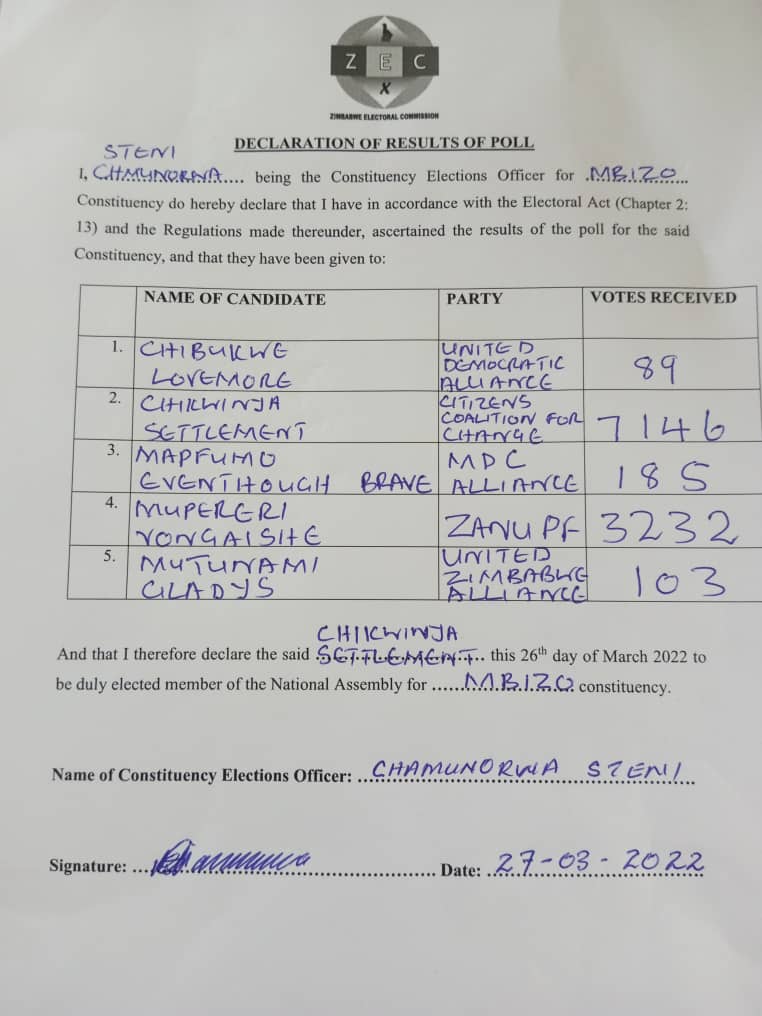 Z E C
X
ZIMBABWE ELECTORAL COMMISSION
DECLARATION OF RESULTS OF POLL
STENI
I, CHMUNORWA.... being the Constituency Elections Officer for .MBIZO...
Constituency do hereby declare that I have in accordance with the Electoral Act (Chapter 2:
13) and the Regulations made thereunder, ascertained the results of the poll for the said
Constituency, and that they have been given to:
NAME OF CANDIDATE PARTY VOTES RECEIVED
1. CHIBUKWE LOVEMORE UNITED DEMOCRATIC ALLIANCE 89
2. CHIKWINJA SETTLEMENT CITIZENS COALITION FOR CHANGE 7146
3. MAPFUMO EVENTHOUGH BRAVE MDC ALLIANCE 185
4. MUPERERI VONGAISHE ZANU PF 3232
5. MUTUNAMI GLADYS UNITED ZIMBABWE ALLIANCE 103
CHIKWINJA
And that I therefore declare the said SETTLEMENT... this 26th day of March 2022 to
be duly elected member of the National Assembly for ......MBIZO. constituency.
Name of Constituency Elections Officer: ..CHAMUNORWA STENI..
Signature: ... Date: ..27-03-2022